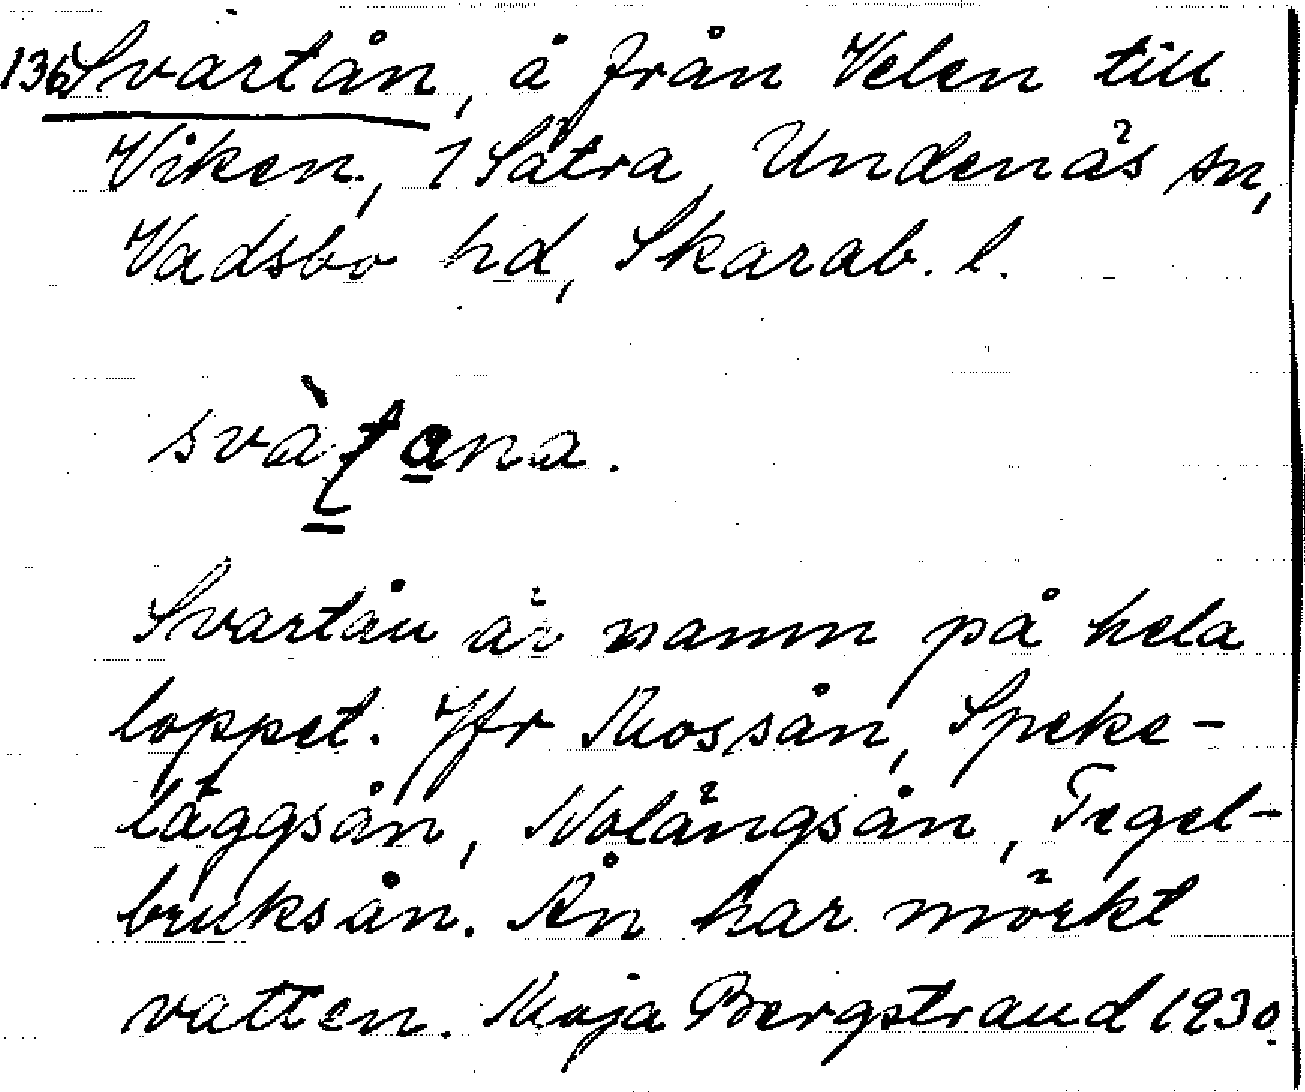 136 Svartån, å från Velen till
Viken, 1 Sätra, Undenäs sn,
Vadsbo hd, Skarab. l.
svàtana.
Svartån är namn på hela
loppet. Jfr Mossån, Speke-
läggsån, Nolängsån, Tegel-
bruksån. Ån har mörkt
vatten. Maja Bergstrand 1930.